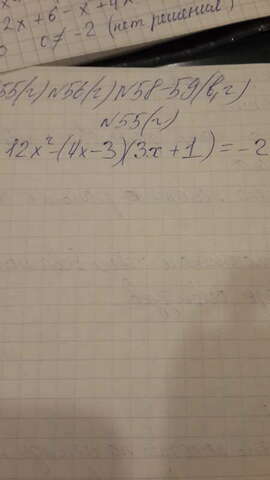 2x + 6 - x + 4x
0 ≠ -2 (нет решения)
55(г) №56(г) №58-59(в,г)
№55(г)
12x² - (4x - 3)(3x + 1) = -2